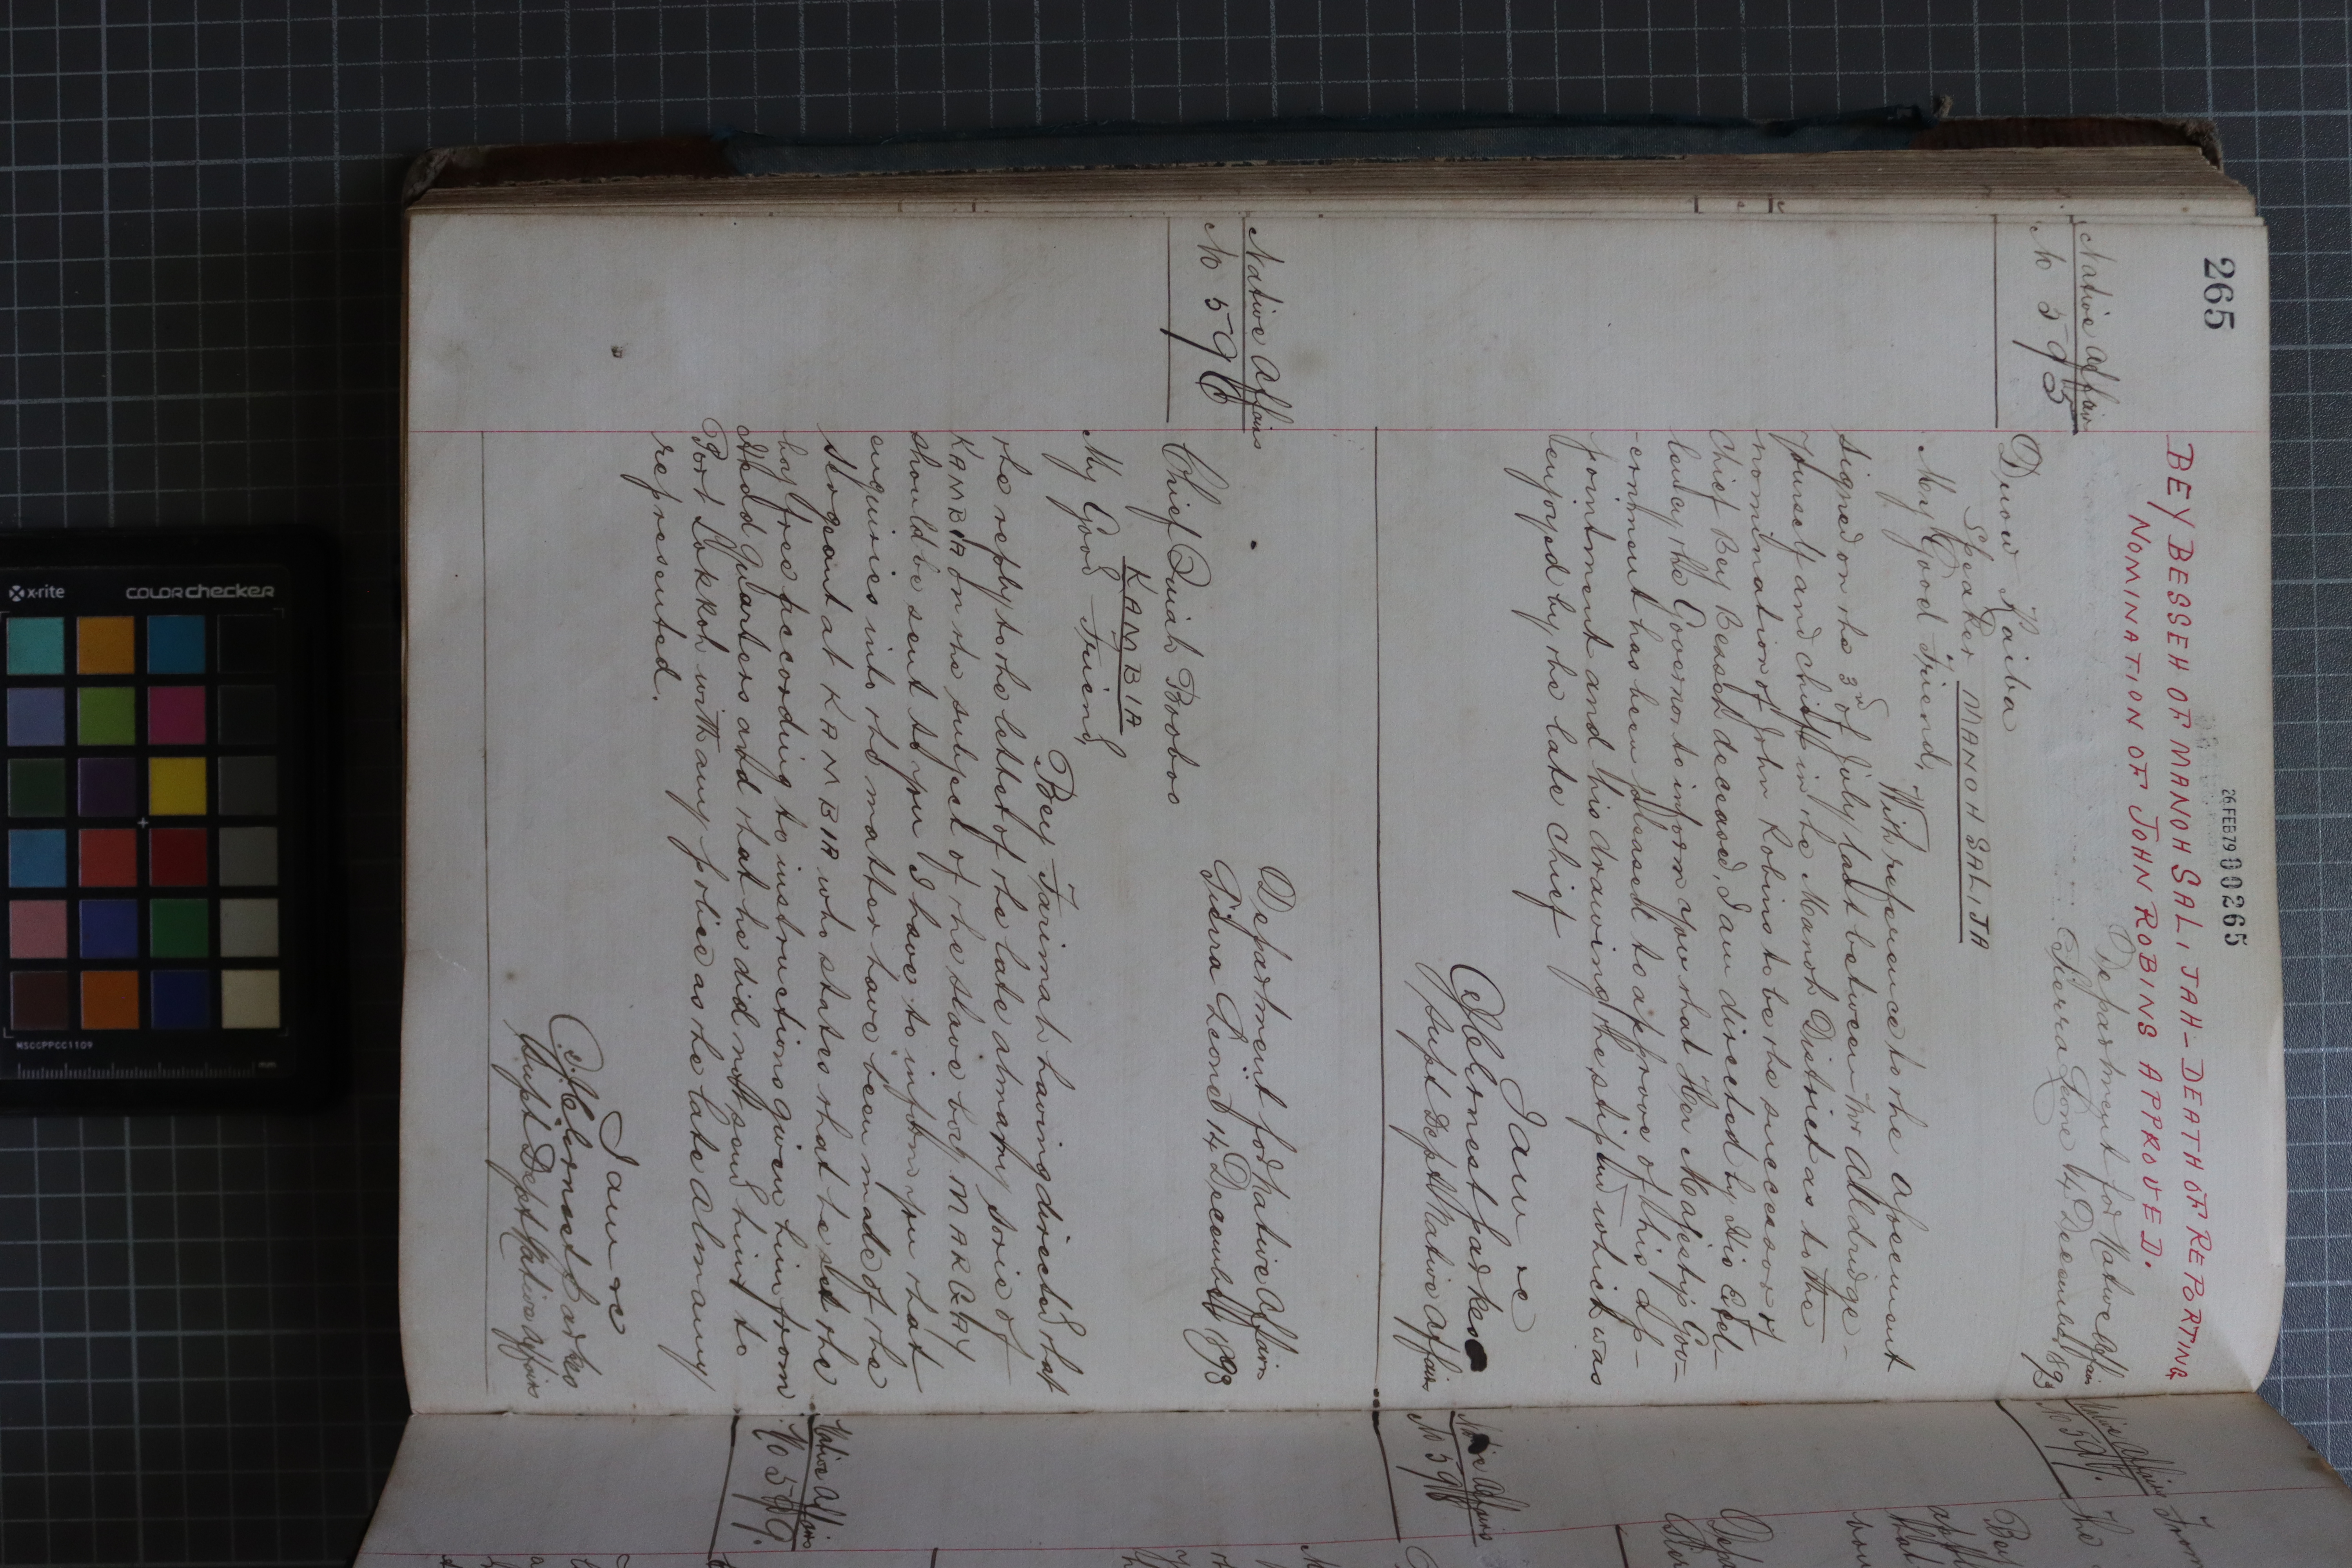 265
26 FEB 79 00265
BEY BESSEH OF MANOH SAL, JAH - DEATH OF REPORTING
NOMINATION OF JOHN ROBINS APPROVED.
Native Affairs
No 595
Department for Native Affairs
Sierra Leone 14 December 1893
Duow Kaiba
Speaker MANOH SALIJA
My Good Friend,
With reference to the agreement
signed on the 3rd of July last between Mr Alldridge -
yourself and chiefs in the Manoh District as to the
nomination of John Robins to be the successor of
Chief Bey Besseh deceased, I am directed by His Excel-
lency the Governor to inform you that Her Majesty's Gov-
ernment has been pleased to approve of this ap-
pointment and his drawing the stipend which was
enjoyed by the late chief
I am &c
J. C. Ernest Parkes
Supt Dept Native Affairs
Native Affairs
No 596
Department for Native Affairs
Sierra Leone 14 December 1893
Chief Quiah Booboo
KAMBIA
My Good Friend
Bey Farimah having directed that
the reply to the letter of the late almamy Sorie of
KAMBIA on the subject of the slave boy MARGAY
should be sent to you I have to inform you that
enquiries into the matter have been made of the
Sergeant at KAMBIA who states that he set the
boy free according to instructions given him from
Head Quarters and that he did not send him to
Port Lokkoh with any police as the late Almamy
represented.
I am &c
J. C. Ernest Parkes
Supt Dept Native Affairs
Native Affairs
No 597.
No 598
Native Affairs
No 599.